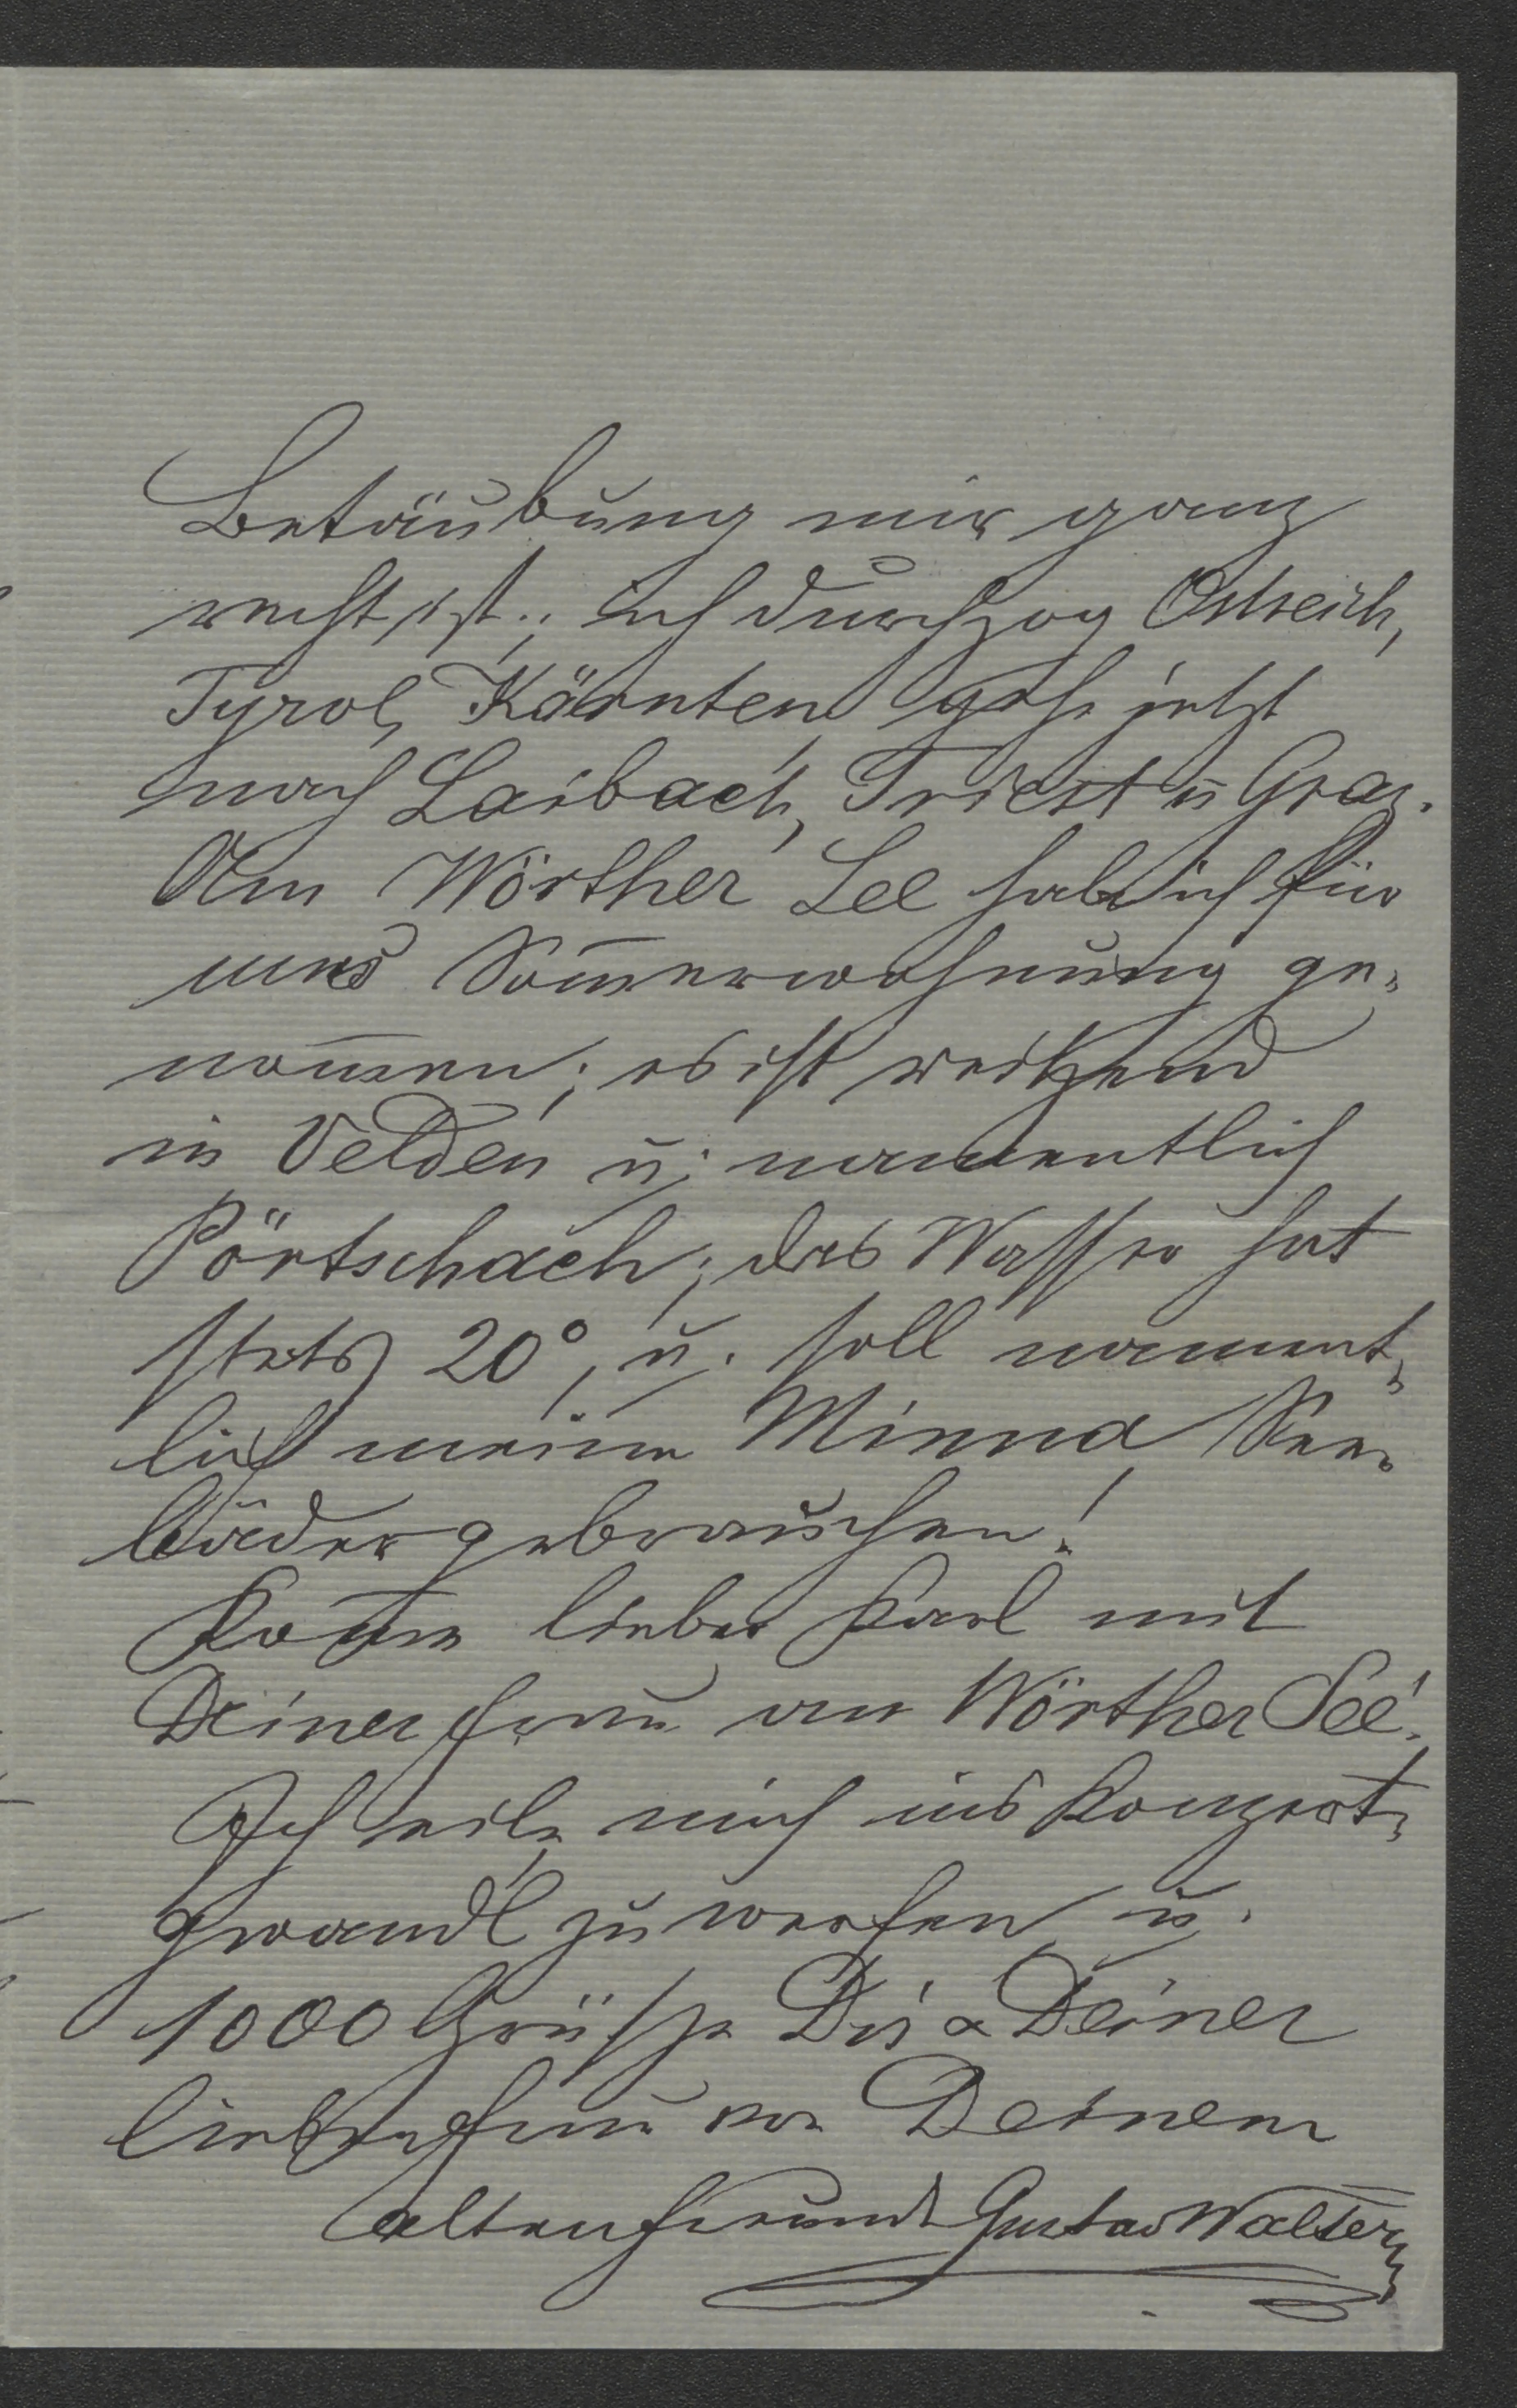 Betäubung mir ganz
recht ist; ich durchzog Östreich,
Tyrol, Kärnten gehe jetzt
nach Laibach, Triest u Graz.
Am Wörther See habe ich für
uns Som̅erwohnung ge-
nom̅en; es ist reitzend
in Velden u. namentlich
Pörtschach; das Wasser hat
stets 20°, u. soll nament-
lich meine Minna See-
bäder gebrauchen!
Kom̅e lieber Karl mit
Deiner Frau an Wörther See!
Ich eile mich ins Konzert-
gwandl zu werfen u.
1000 Grüsse Dir & Deiner
lieben Frau von Deinem
alten Freunde Gustav Walter